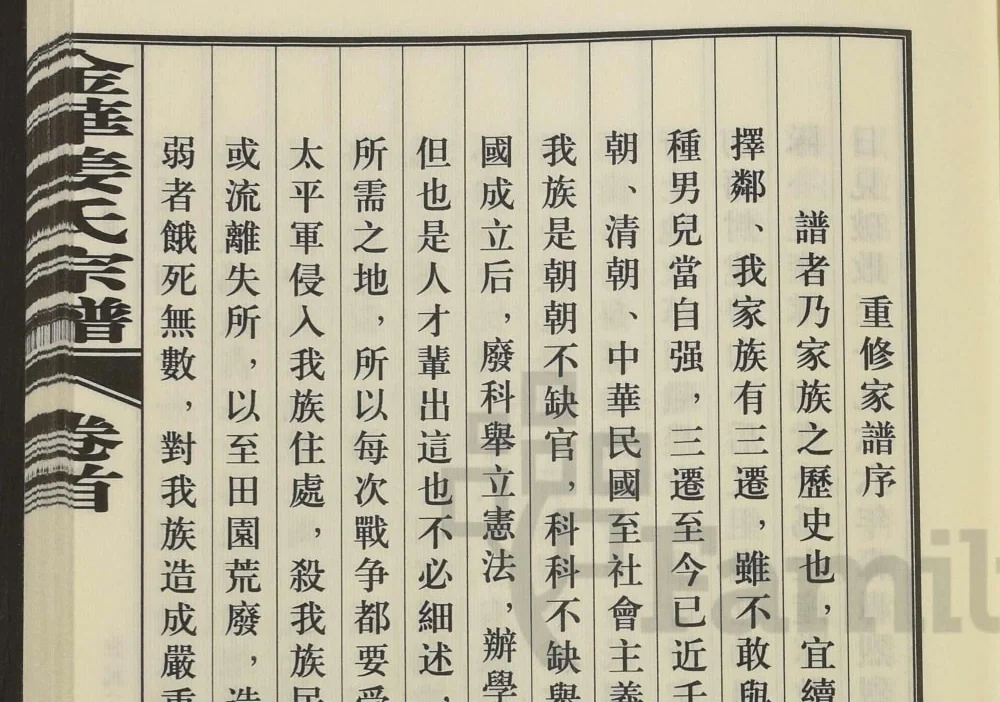 重修家譜序
譜者乃家族之歷史也，宜續
擇鄰、我家族有三遷，雖不敢與
種男兒當自强，三遷至今已近千
朝、清朝、中華民國至社會主義
我族是朝朝不缺官，科科不缺舉
國成立后，廢科舉立憲法，辦學
但也是人才輩出這也不必細述，
所需之地，所以每次戰争都要受
太平軍侵入我族住處，殺我族民
或流離失所，以至田園荒廢，造
弱者餓死無數，對我族造成嚴重
金華姜氏宗譜 卷首
Famil